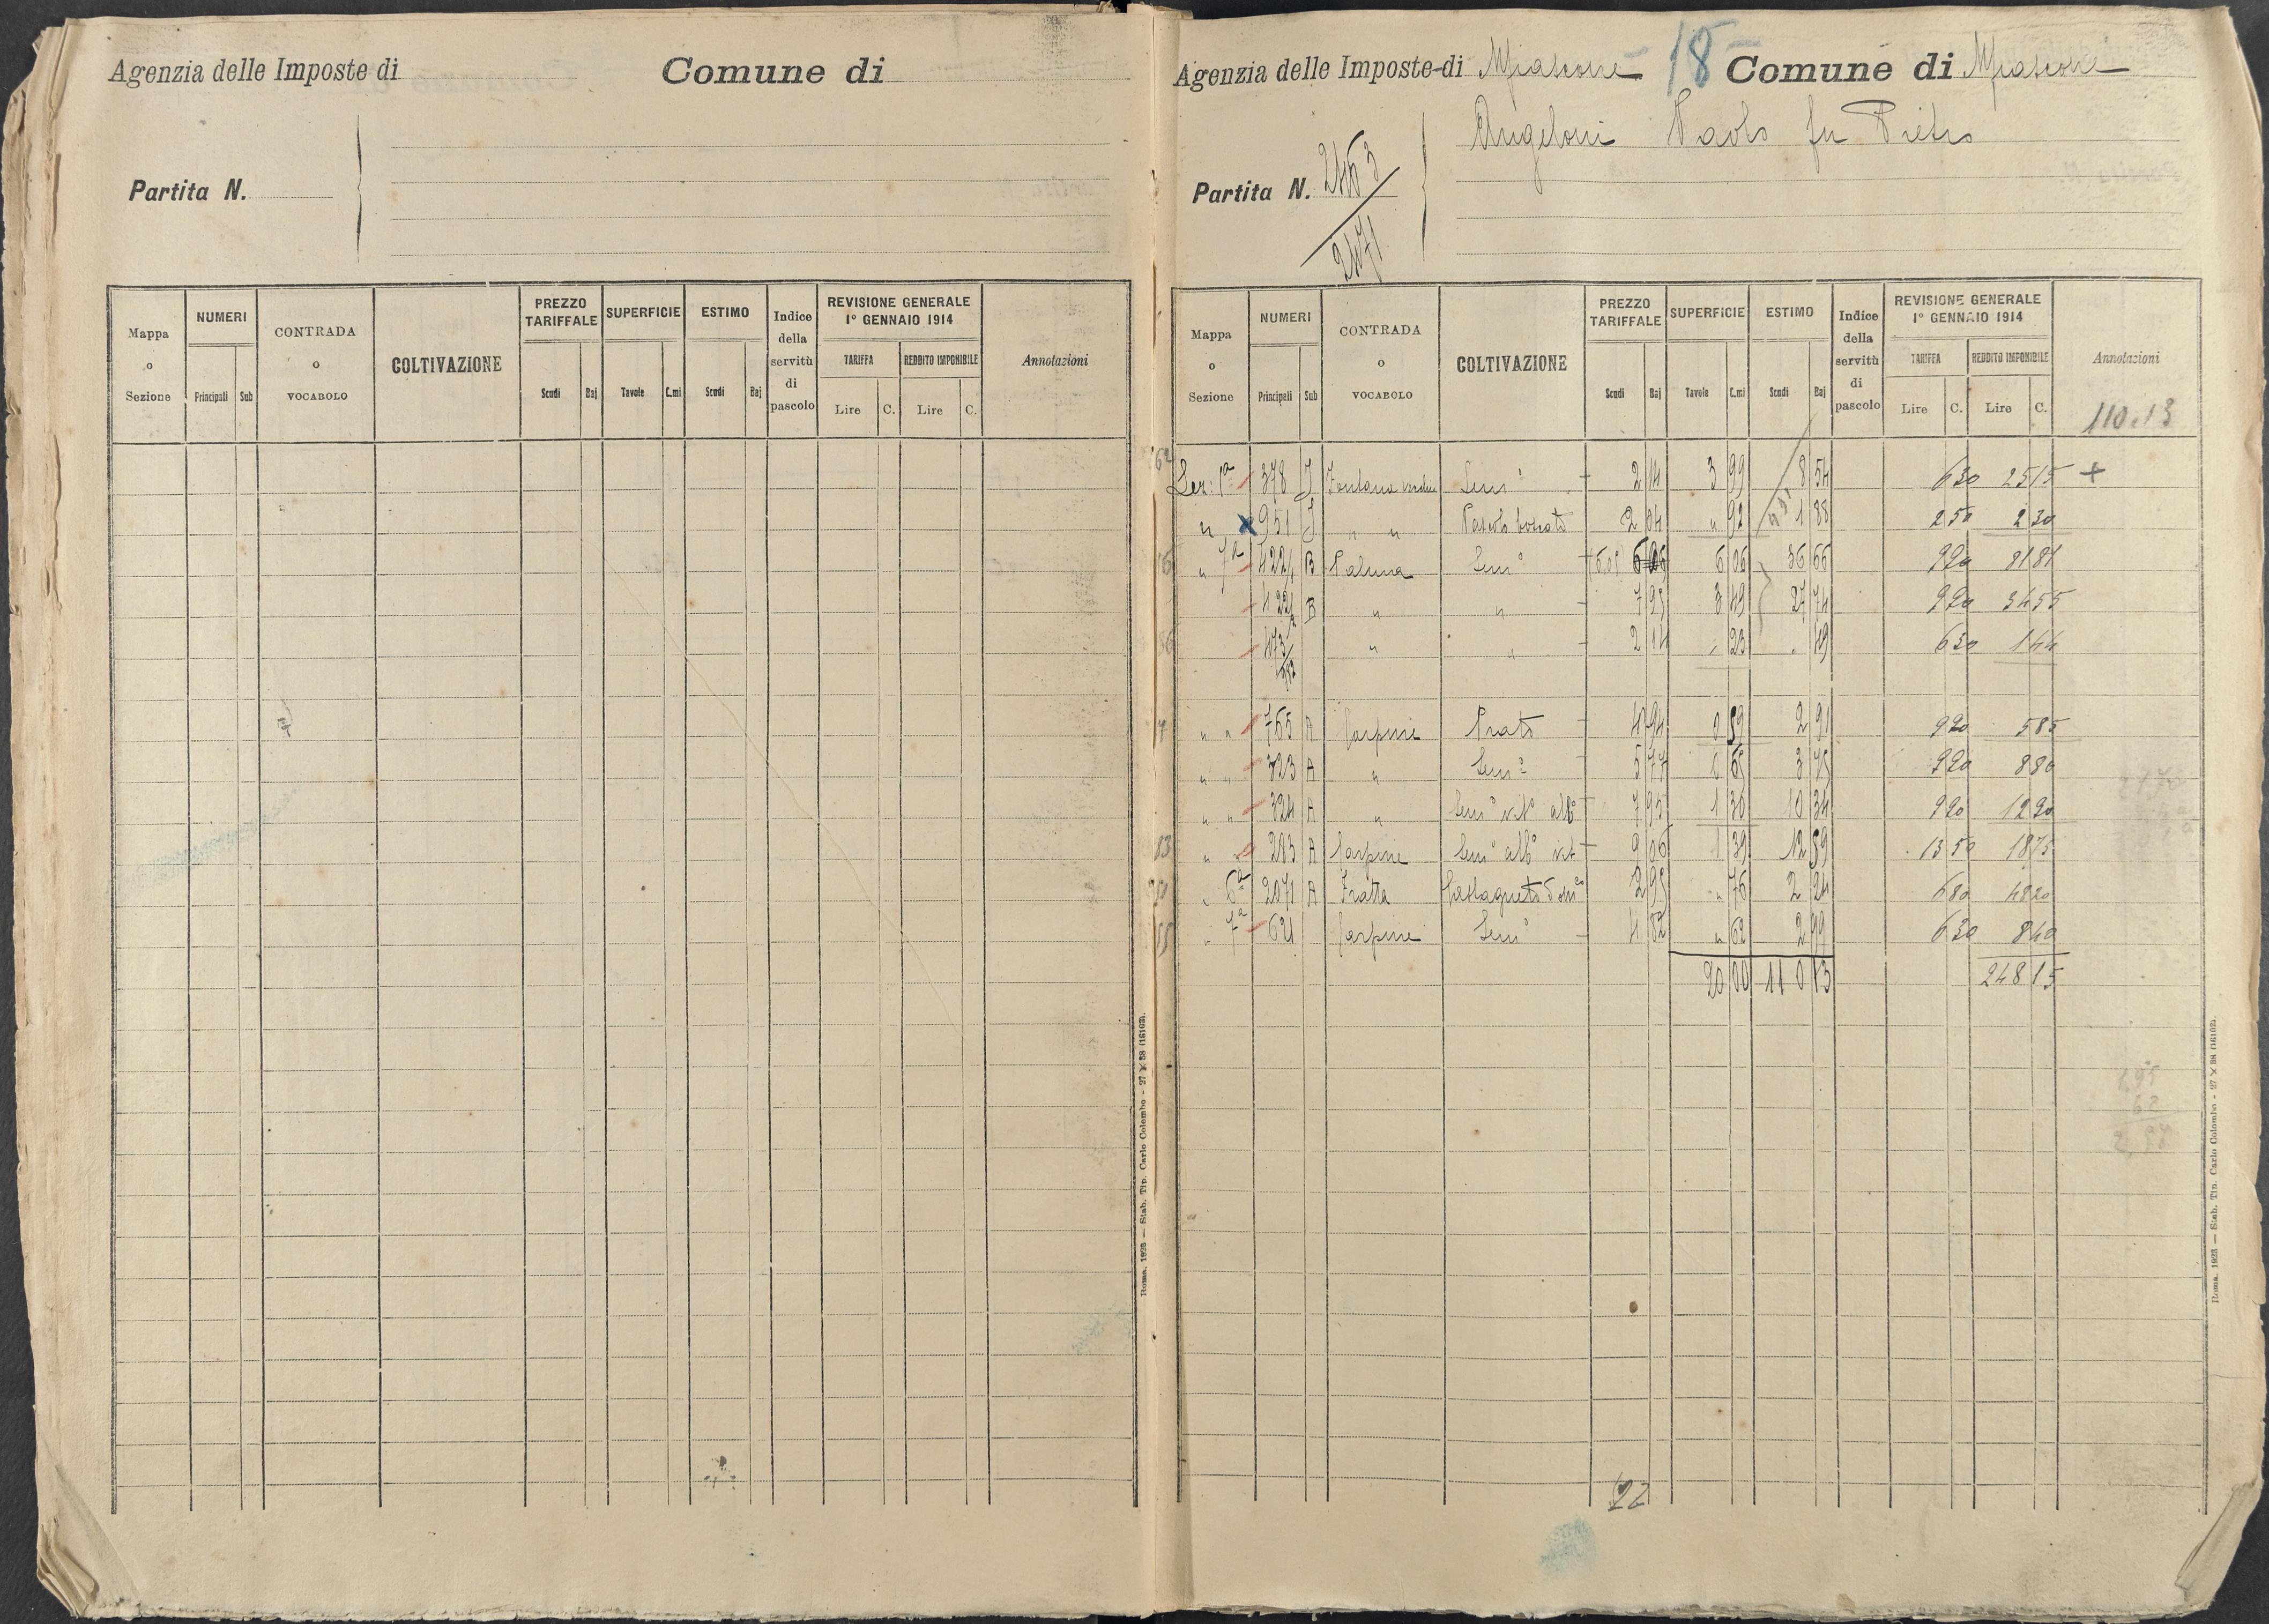 Agenzia delle Imposte di Comune di
Partita N.
Mappa o Sezione NUMERI Principali Sub CONTRADA o VOCABOLO COLTIVAZIONE PREZZO TARIFFALE Scudi Baj SUPERFICIE Tavole C.mi ESTIMO Scudi Baj Indice della servitù di pascolo REVISIONE GENERALE 1° GENNAIO 1914 TARIFFA Lire C. REDDITO IMPONIBILE Lire C. Annotazioni
Roma, 1923 — Stab. Tip. Carlo Colombo - 27 × 38 (16102).
Agenzia delle Imposte di 18 Comune di
Angeloni Paolo fu Pietro
Partita N. 2463
2471
Mappa o Sezione NUMERI Principali Sub CONTRADA o VOCABOLO COLTIVAZIONE PREZZO TARIFFALE Scudi Baj SUPERFICIE Tavole C.mi ESTIMO Scudi Baj Indice della servitù di pascolo REVISIONE GENERALE 1° GENNAIO 1914 TARIFFA Lire C. REDDITO IMPONIBILE Lire C. Annotazioni
110.13
Sez: 1ª 378 J Fontana Semº 2 14 3 99 8 54 6 30 25 15 +
" x 951 J " " Pascolo boscato 2 04 " 92 1 88 2 50 2 30
" 7ª B Palma Semº 6 06 36 66 9 20 81 81
B " " 7 95 3 49 27 74 9 20 34 55
473 " " 2 14 " 23 " 49 6 30 1 44
" " 765 A Carpine Prato 4 94 " 59 2 91 9 20 5 85
" " 323 A " Semº 5 77 " 65 3 75 9 20 8 80
" " 324 A " Semº vitº albº 7 95 1 30 10 34 9 20 12 90
" " 283 A Carpine Semº albº vit 9 06 1 39 12 59 13 50 18 75
" 6ª 2071 A Fratta 2 95 " 76 2 24 6 80 48 20
" 7ª 621 Carpine Semº 4 82 " 62 2 99 6 30 8 40
20 00 110 13 248 15
22
Roma, 1923 — Stab. Tip. Carlo Colombo - 27 × 38 (16102).